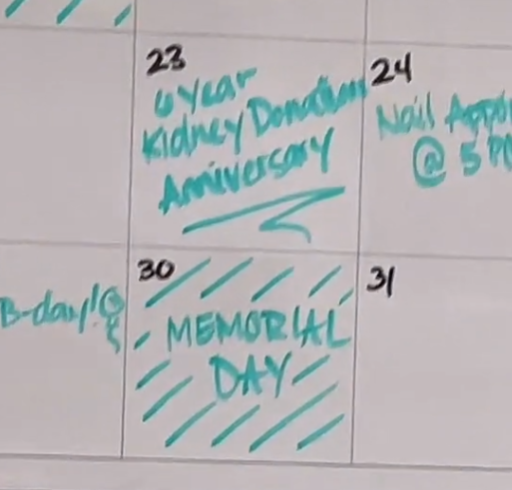 23
6 year
Kidney Donation
Anniversary
24
Nail
@ 5
B-day!
30
MEMORIAL
DAY
31